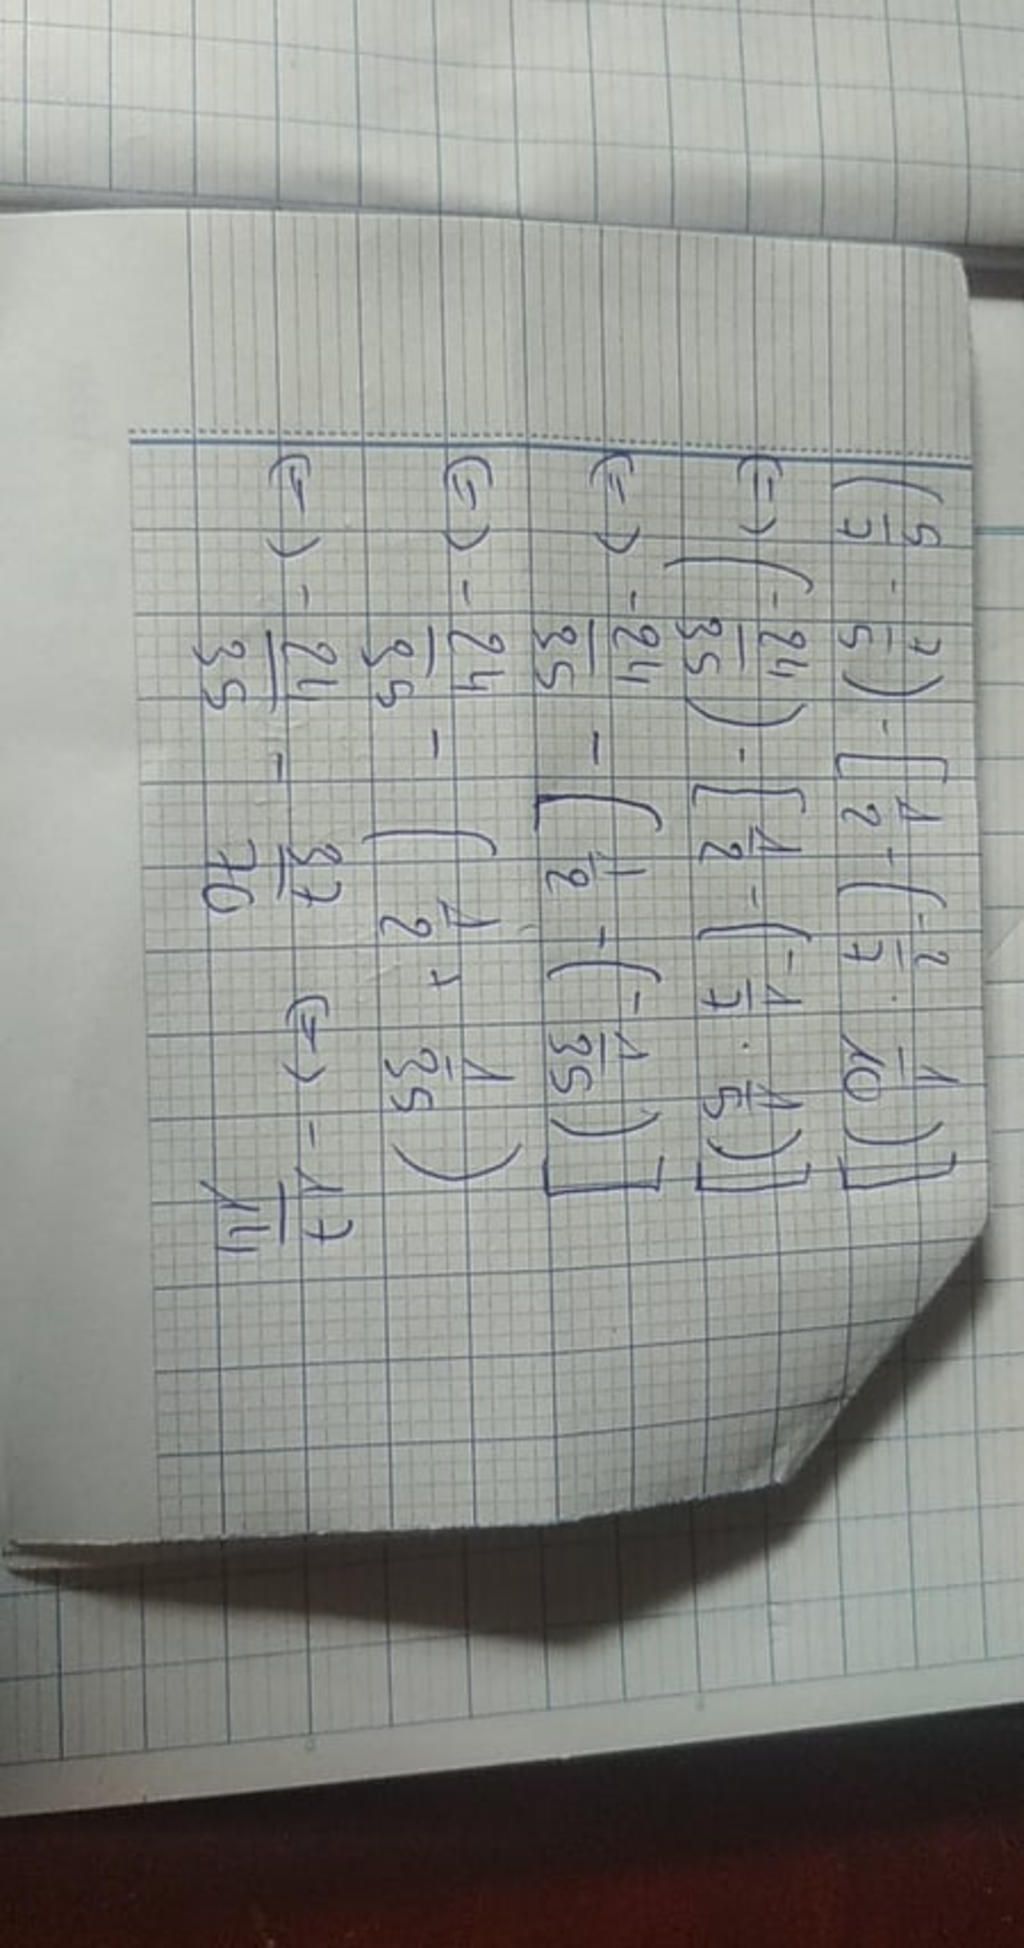 (5/7 - 7/5) - [1/2 - (-2/7 · 1/10)]
(=) (-24/35) - [1/2 - (-1/7 · 1/5)]
(=) -24/35 - [1/2 - (-1/35)]
(=) -24/35 - (1/2 + 1/35)
(=) -24/35 - 37/70 (=) -17/14